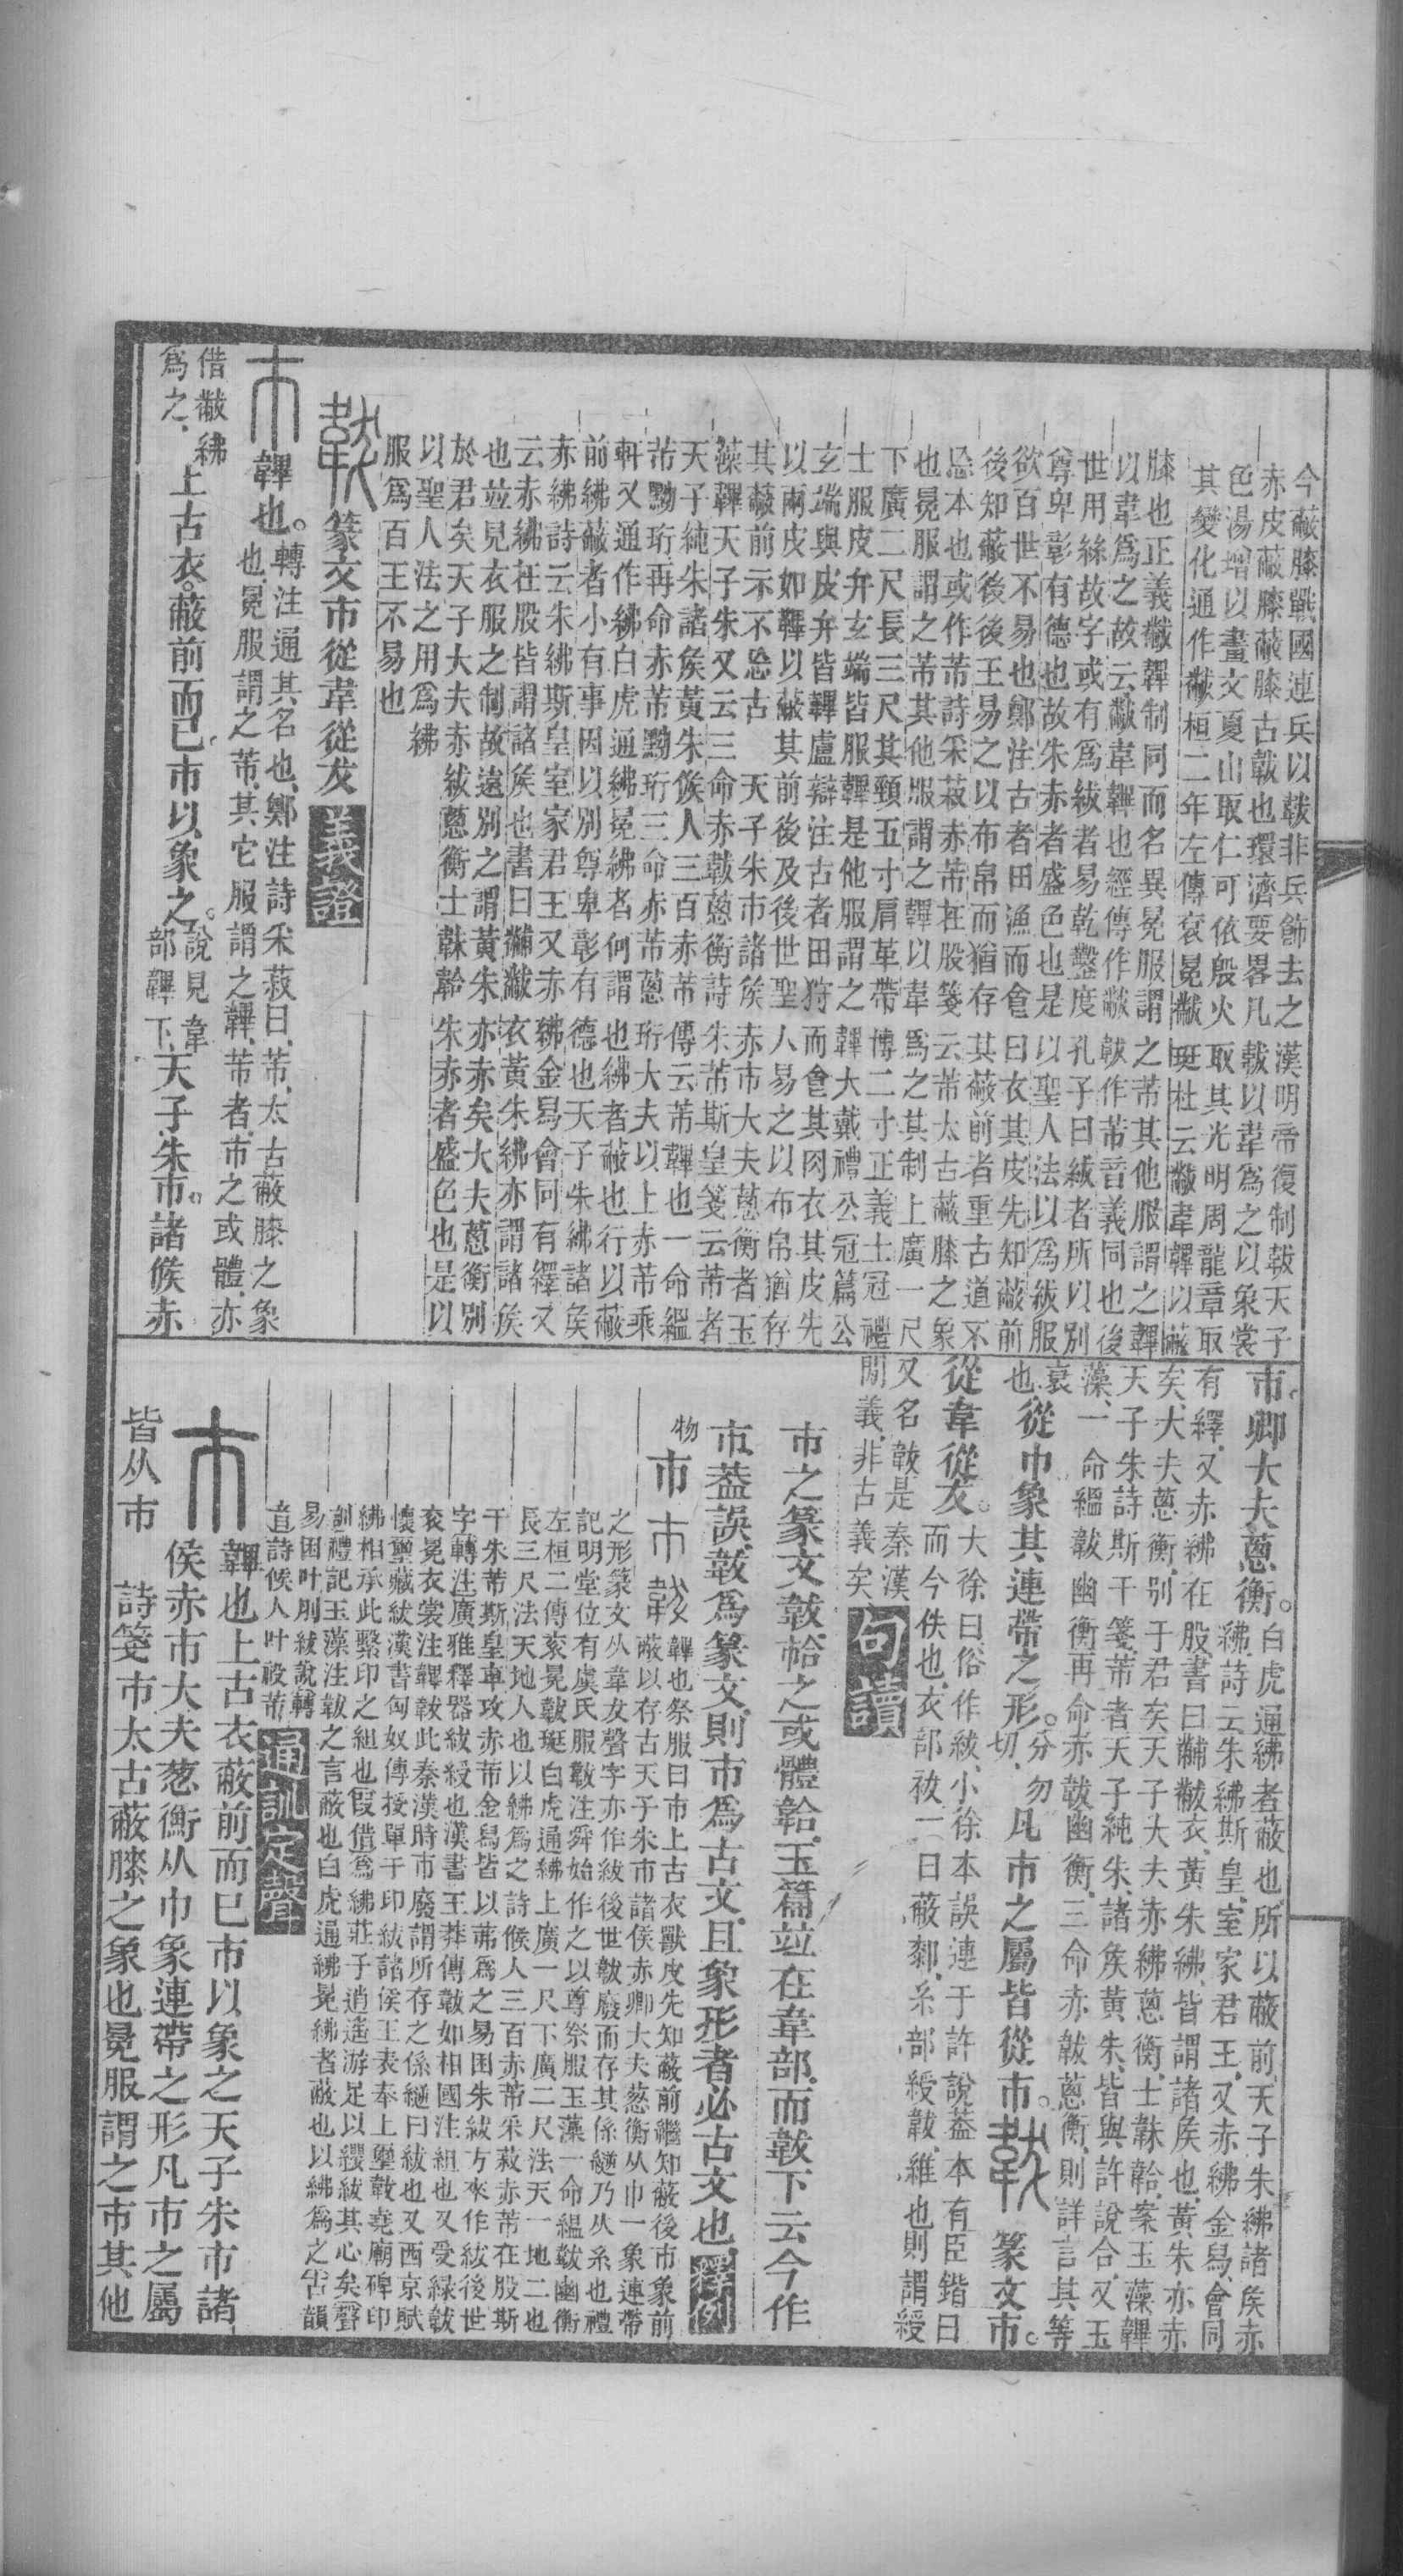 今蔽膝戰國連兵以韍非兵飾去之漢明帝復制韍天子
赤皮蔽膝蔽膝古韍也環濟要畧凡韍以韋爲之以象裳
色湯增以畫文夏山取仁可依殷火取其光明周龍章取
其變化通作黻桓二年左傳袞冕黻珽杜云黻韋韠以蔽
膝也正義黻韠制同而名異冕服謂之芾其他服謂之韠
以韋爲之故云黻韋韠也經傳作黻韍作芾音義同也後
世用絲故字或有爲紱者易乾鑿度孔子曰紱者所以別
尊卑彰有德也故朱赤者盛色也是以聖人法以爲紱服
欲百世不易也鄭注古者田漁而食曰衣其皮先知蔽前
後知蔽後後王易之以布帛而猶存其蔽前者重古道不
忘本也或作芾詩采菽赤芾在股箋云芾太古蔽膝之象
也冕服謂之芾其他服謂之韠以韋爲之其制上廣一尺
下廣二尺長三尺其頸五寸肩革帶博二寸正義士冠禮
士服皮弁玄端皆服韠是他服謂之韠大戴禮公冠篇公
玄端與皮弁皆韠盧辯注古者田狩而食其肉衣其皮先
以兩皮如韠以蔽其前後及後世聖人易之以布帛猶存
其蔽前示不忘古　天子朱市諸矦赤市大夫蔥衡者玉
藻韠天子朱又云三命赤韍蔥衡詩朱芾斯皇箋云芾者
天子純朱諸矦黃朱矦人三百赤芾傳云芾韠也一命縕
芾黝珩再命赤芾黝珩三命赤芾蔥珩大夫以上赤芾乘
軒又通作紼白虎通紼冕紼者何謂也紼者蔽也行以蔽
前紼蔽者小有事因以別尊卑彰有德也天子朱紼諸矦
赤紼詩云朱紼斯皇室家君王又赤紼金舃會同有繹又
云赤紼在股皆謂諸矦也書曰黼黻衣黃朱紼亦謂諸矦
也竝見衣服之制故遠別之謂黃朱亦赤矣大夫蔥衡別
於君矣天子大夫赤紱蔥衡士韎韐朱赤者盛色也是以
以聖人法之用爲紼
服爲百王不易也
韍篆文市從韋從犮義證
市韠也。轉注通其名也、鄭注詩采菽曰、芾、太古蔽膝之象
也、冕服謂之芾、其它服謂之韠、芾者、市之或體、亦
借黻紼
爲之、上古衣。蔽前而已、市以象之。說見韋
部韠下、天子朱市。諸侯赤
市。卿大夫蔥衡。白虎通紼者蔽也、所以蔽前、天子朱紼諸矦赤
紼、詩云朱紼斯皇、室家君王、又赤紼金舃、會同
有繹、又赤紼在股、書曰黼黻衣、黃朱紼、皆謂諸矦也、黃朱亦赤
矣、大夫蔥衡、别于君矣天子大夫赤紼蔥衡、士韎韐、案玉藻韠
天子朱詩斯干箋、芾者天子純朱、諸矦黃朱、皆與許說合、又玉
藻、一命縕韍幽衡再命赤韍幽衡、三命赤韍蔥衡、則詳言其等
衰也、從巾象其連帶之形。分勿
切、凡市之屬皆從市。韍篆文市。
從韋從犮。大徐曰俗作紱、小徐本誤連于許說葢本有臣鍇曰
而今佚也、衣部袚一曰蔽厀、糸部綬韍、維也則謂綬
又名韍是秦漢
閒義、非古義矣句讀
市之篆文韍帢之或體韐、玉篇竝在韋部、而韍下云今作
市葢誤、韍爲篆文、則市爲古文、且象形者必古文也、釋例
物市市韍韠也祭服曰市上古衣獸皮先知蔽前繼知蔽後市象前
蔽以存古天子朱市諸侯赤卿大夫葱衡从巾一象連帶
之形篆文从韋犮聲字亦作紱後世韍廢而存其係䙡乃从糸也禮
記明堂位有虞氏服韍注舜始作之以尊祭服玉藻一命縕韍幽衡
左桓二傳袞冕韍珽白虎通紼上廣一尺下廣二尺法天一地二也
長三尺法天地人也以紼爲之詩候人三百赤芾采菽赤芾在股斯
干朱芾斯皇車攻赤芾金舄皆以芾爲之易困朱紱方來作紱後世
字轉注廣雅釋器紱綬也漢書王莽傳韍如相國注組也又受綠韍
袞冕衣裳注韠韍此秦漢時市廢謂所存之係䙡曰紱也又西京賦
懷璽藏紱漢書匈奴傳授單于印紱諸侯王表奉上璽韍堯廟碑印
紼相承此繫印之組也叚借爲紼莊子逍遙游足以纓紱其心矣聲
訓禮記玉藻注韍之言蔽也白虎通紼冕紼者蔽也以紼爲之古韻
易困叶刖紱說轉
音詩候人叶祋芾通訓定聲
市韠也上古衣蔽前而已市以象之天子朱市諸
侯赤市大夫葱衡从巾象連帶之形凡市之屬
皆从市　詩箋市太古蔽膝之象也冕服謂之市其他